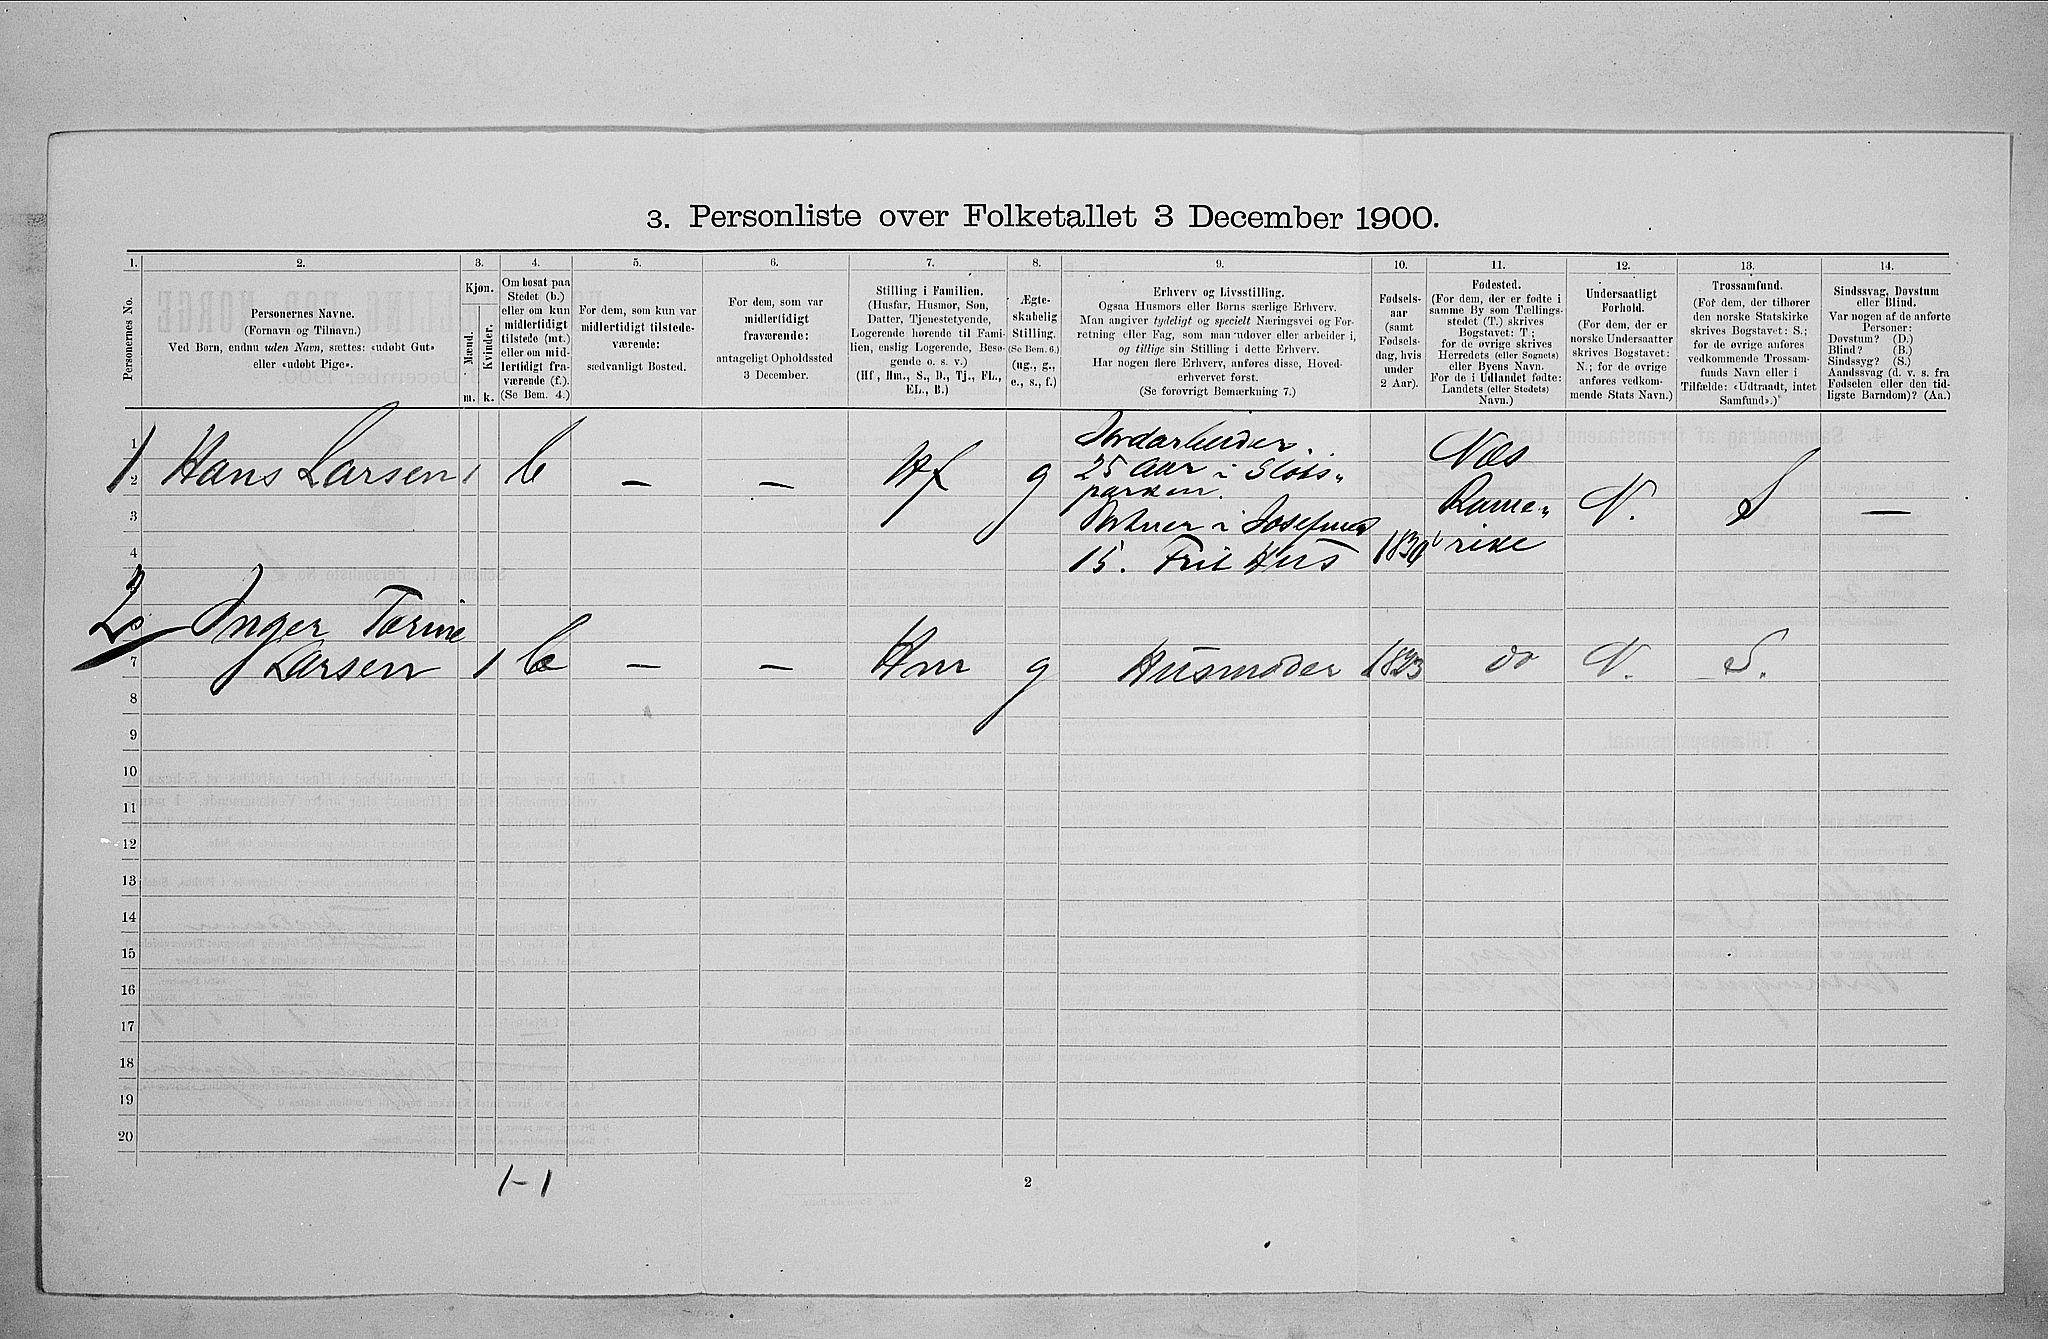 3. Personliste over Folketallet 3 December 1900.
1.
2.
3.
4.
5.
6.
7.
8.
9.
10.
11.
12.
13.
14.
Personernes No.
Personernes Navne.
(Fornavn og Tilnavn.)
Ved Børn, endnu uden Navn, sættes: «udøbt Gut»
eller «udøbt Pige».
Kjøn.
Mænd.
Kvinder.
m.
k.
Om bosat paa
Stedet (b.)
eller om kun
midlertidigt
tilstede (mt.)
eller om mid-
lertidigt fra-
værende (f.).
(Se Bem. 4.)
For dem, som kun var
midlertidigt tilstede-
værende:
sædvanligt Bosted.
For dem, som var
midlertidigt
fraværende:
antageligt Opholdssted
3 December.
Stilling i Familien.
(Husfar, Husmor, Søn,
Datter, Tjenestetyende,
Logerende hørende til Fami-
lien, enslig Logerende, Besø-
gende o. s. v.)
(Hf, Hm., S., D., Tj., FL.,
EL., B.)
Ægte-
skabelig
Stilling.
(Se Bem. 6.)
(ug., g.,
e., s., f.)
Erhverv og Livsstilling.
Ogsaa Husmors eller Børns særlige Erhverv.
Man angiver tydeligt og specielt Næringsvei og For-
retning eller Fag, som man udøver eller arbeider i,
og tillige sin Stilling i dette Erhverv.
Har nogen flere Erhverv, anføres disse, Hoved-
erhvervet først.
(Se forøvrigt Bemærkning 7.)
Fødsels-
aar
(samt
Fødsels-
dag, hvis
under
2 Aar).
Fødested.
(For dem, der er fødte i
samme By som Tællings-
stedet (T.) skrives
Bogstavet: T.;
for de øvrige skrives
Herredets (eller Sognets)
eller Byens Navn.
For de i Udlandet fødte:
Landets (eller Stedets)
Navn.)
Undersaatligt
Forhold.
(For dem, der er
norske Undersaatter
skrives Bogstavet:
N.; for de øvrige
anføres vedkom-
mende Stats Navn.)
Trossamfund.
(For dem, der tilhører
den norske Statskirke
skrives Bogstavet: S.;
for de øvrige anføres
vedkommende Trossam-
funds Navn eller i
Tilfælde: «Udtraadt, intet
Samfund».)
Sindssvag, Døvstum
eller Blind.
Var nogen af de anførte
Personer:
Døvstum? (D.)
Blind? (B.)
Sindssyg? (S.)
Aandssvag (d. v. s. fra
Fødselen eller den tid-
ligste Barndom)? (Aa.)
1 Hans Larsen 1 b — — Hf g
Jordarbeider
25 Aar i Slots-
parken.
Portner i Josefines
15. Frit Hus
Næs
Rome-
rike
N. S —
2 Inger Torine
Larsen 1 b — — Hm g Husmoder do N. S.
1
2
3
4
7
8
9
10
11
12
13
14
15
16
17
18
19
20
1-1
2